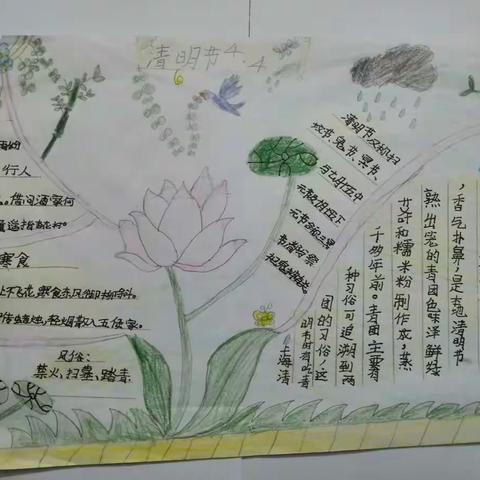 清明节4.4
雨纷
行人
。借问酒家何
童遥指杏花村。
寒食
处不飞花,寒食东风御柳斜。
传蜡烛,轻烟散入五侯家。
风俗:
禁火、扫墓、踏青
清明节又叫扫
坟节、鬼节、冥节、
与七月十五中
元节
元节合称三冥
节
上海清
明节时有吃青
团的习俗,这
种习俗可追溯到两
千多年前。青团主要
艾草和糯米粉制作成,蒸
熟出笼的青团色泽鲜绿
,香气扑鼻,是本地清明节